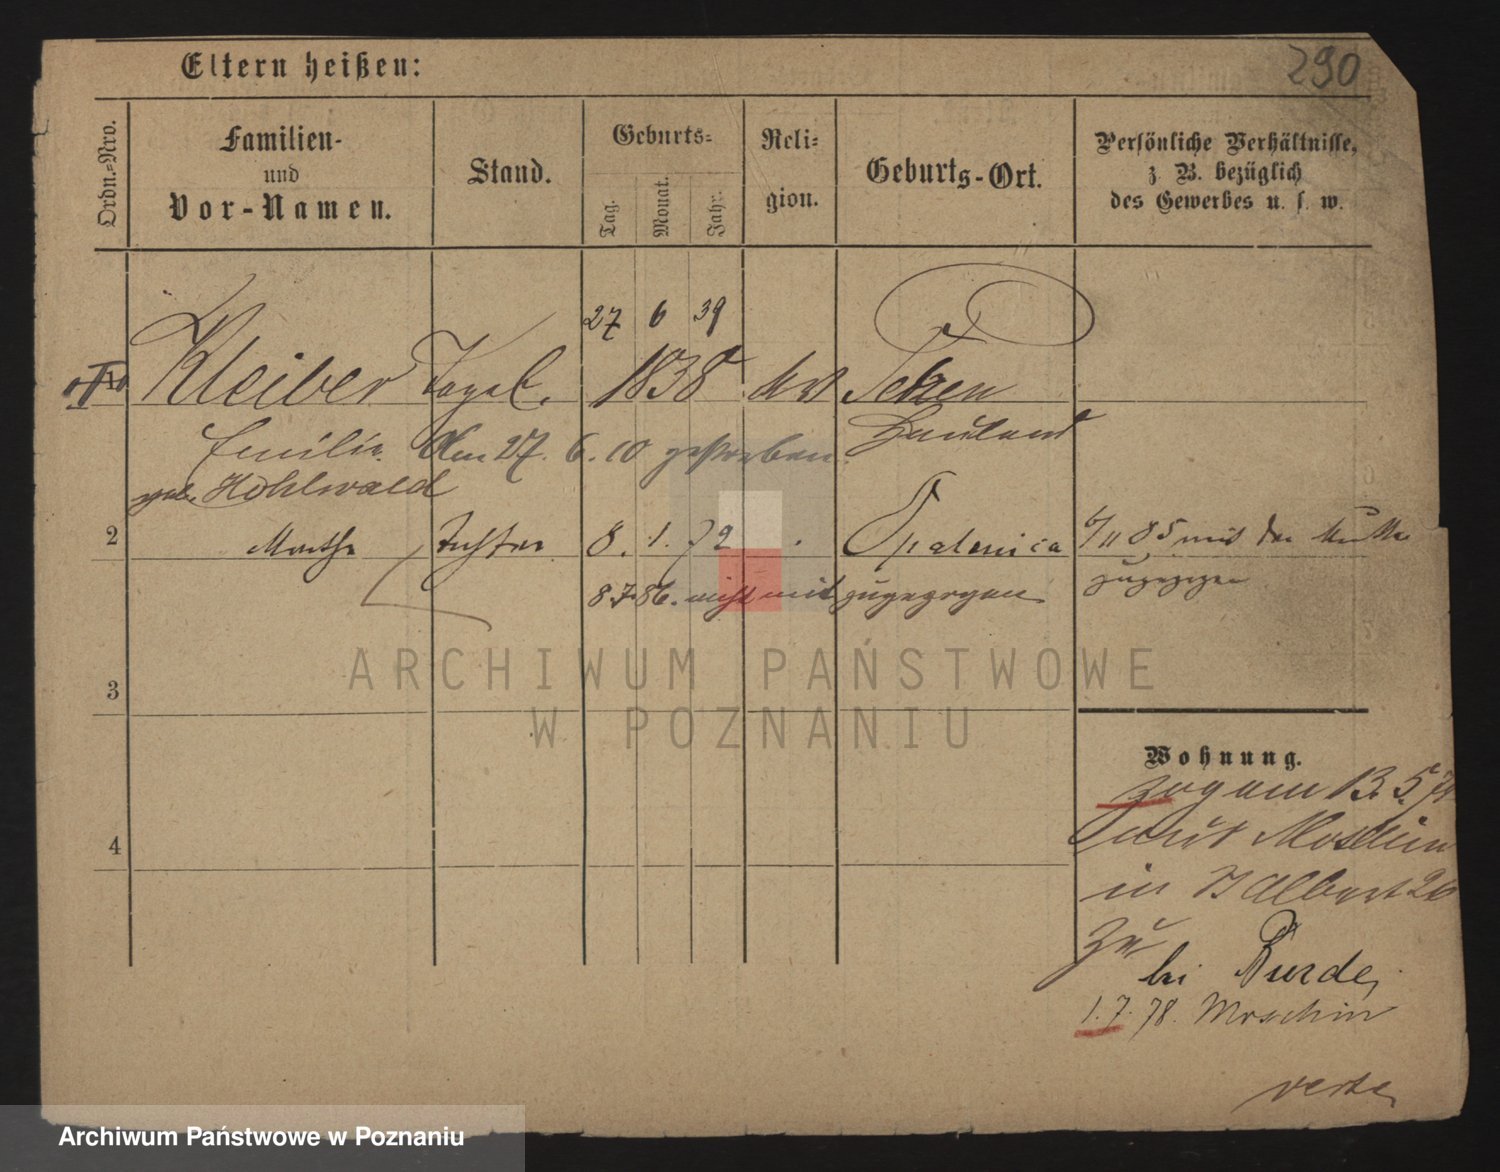 290
Eltern heißen:
Ordn.-Nro.
Familien-
und
Vor-Namen.
Stand.
Geburts-
Tag.
Monat.
Jahr.
Reli-
gion.
Geburts-Ort.
Persönliche Verhältnisse,
z. B. bezüglich
des Gewerbes u. s. w.
27 6 39
Kleiber Tagel. 1838
Emilie Am 27. 6. 10 gestorben.
geb. Hohlwald
2 Martha Tochter 8. 1. 72 Opalenica 6/11 85 mit der Mutter
zugezogen
8.7.86. nicht mit zugezogen
ARCHIWUM PAŃSTWOWE
W POZNANIU
3
Wohnung.
zog am 13. 5.
aus Moschin
4
in
zu
bei Burde,
1. 7. 78. Moschin
verte
Archiwum Państwowe w Poznaniu